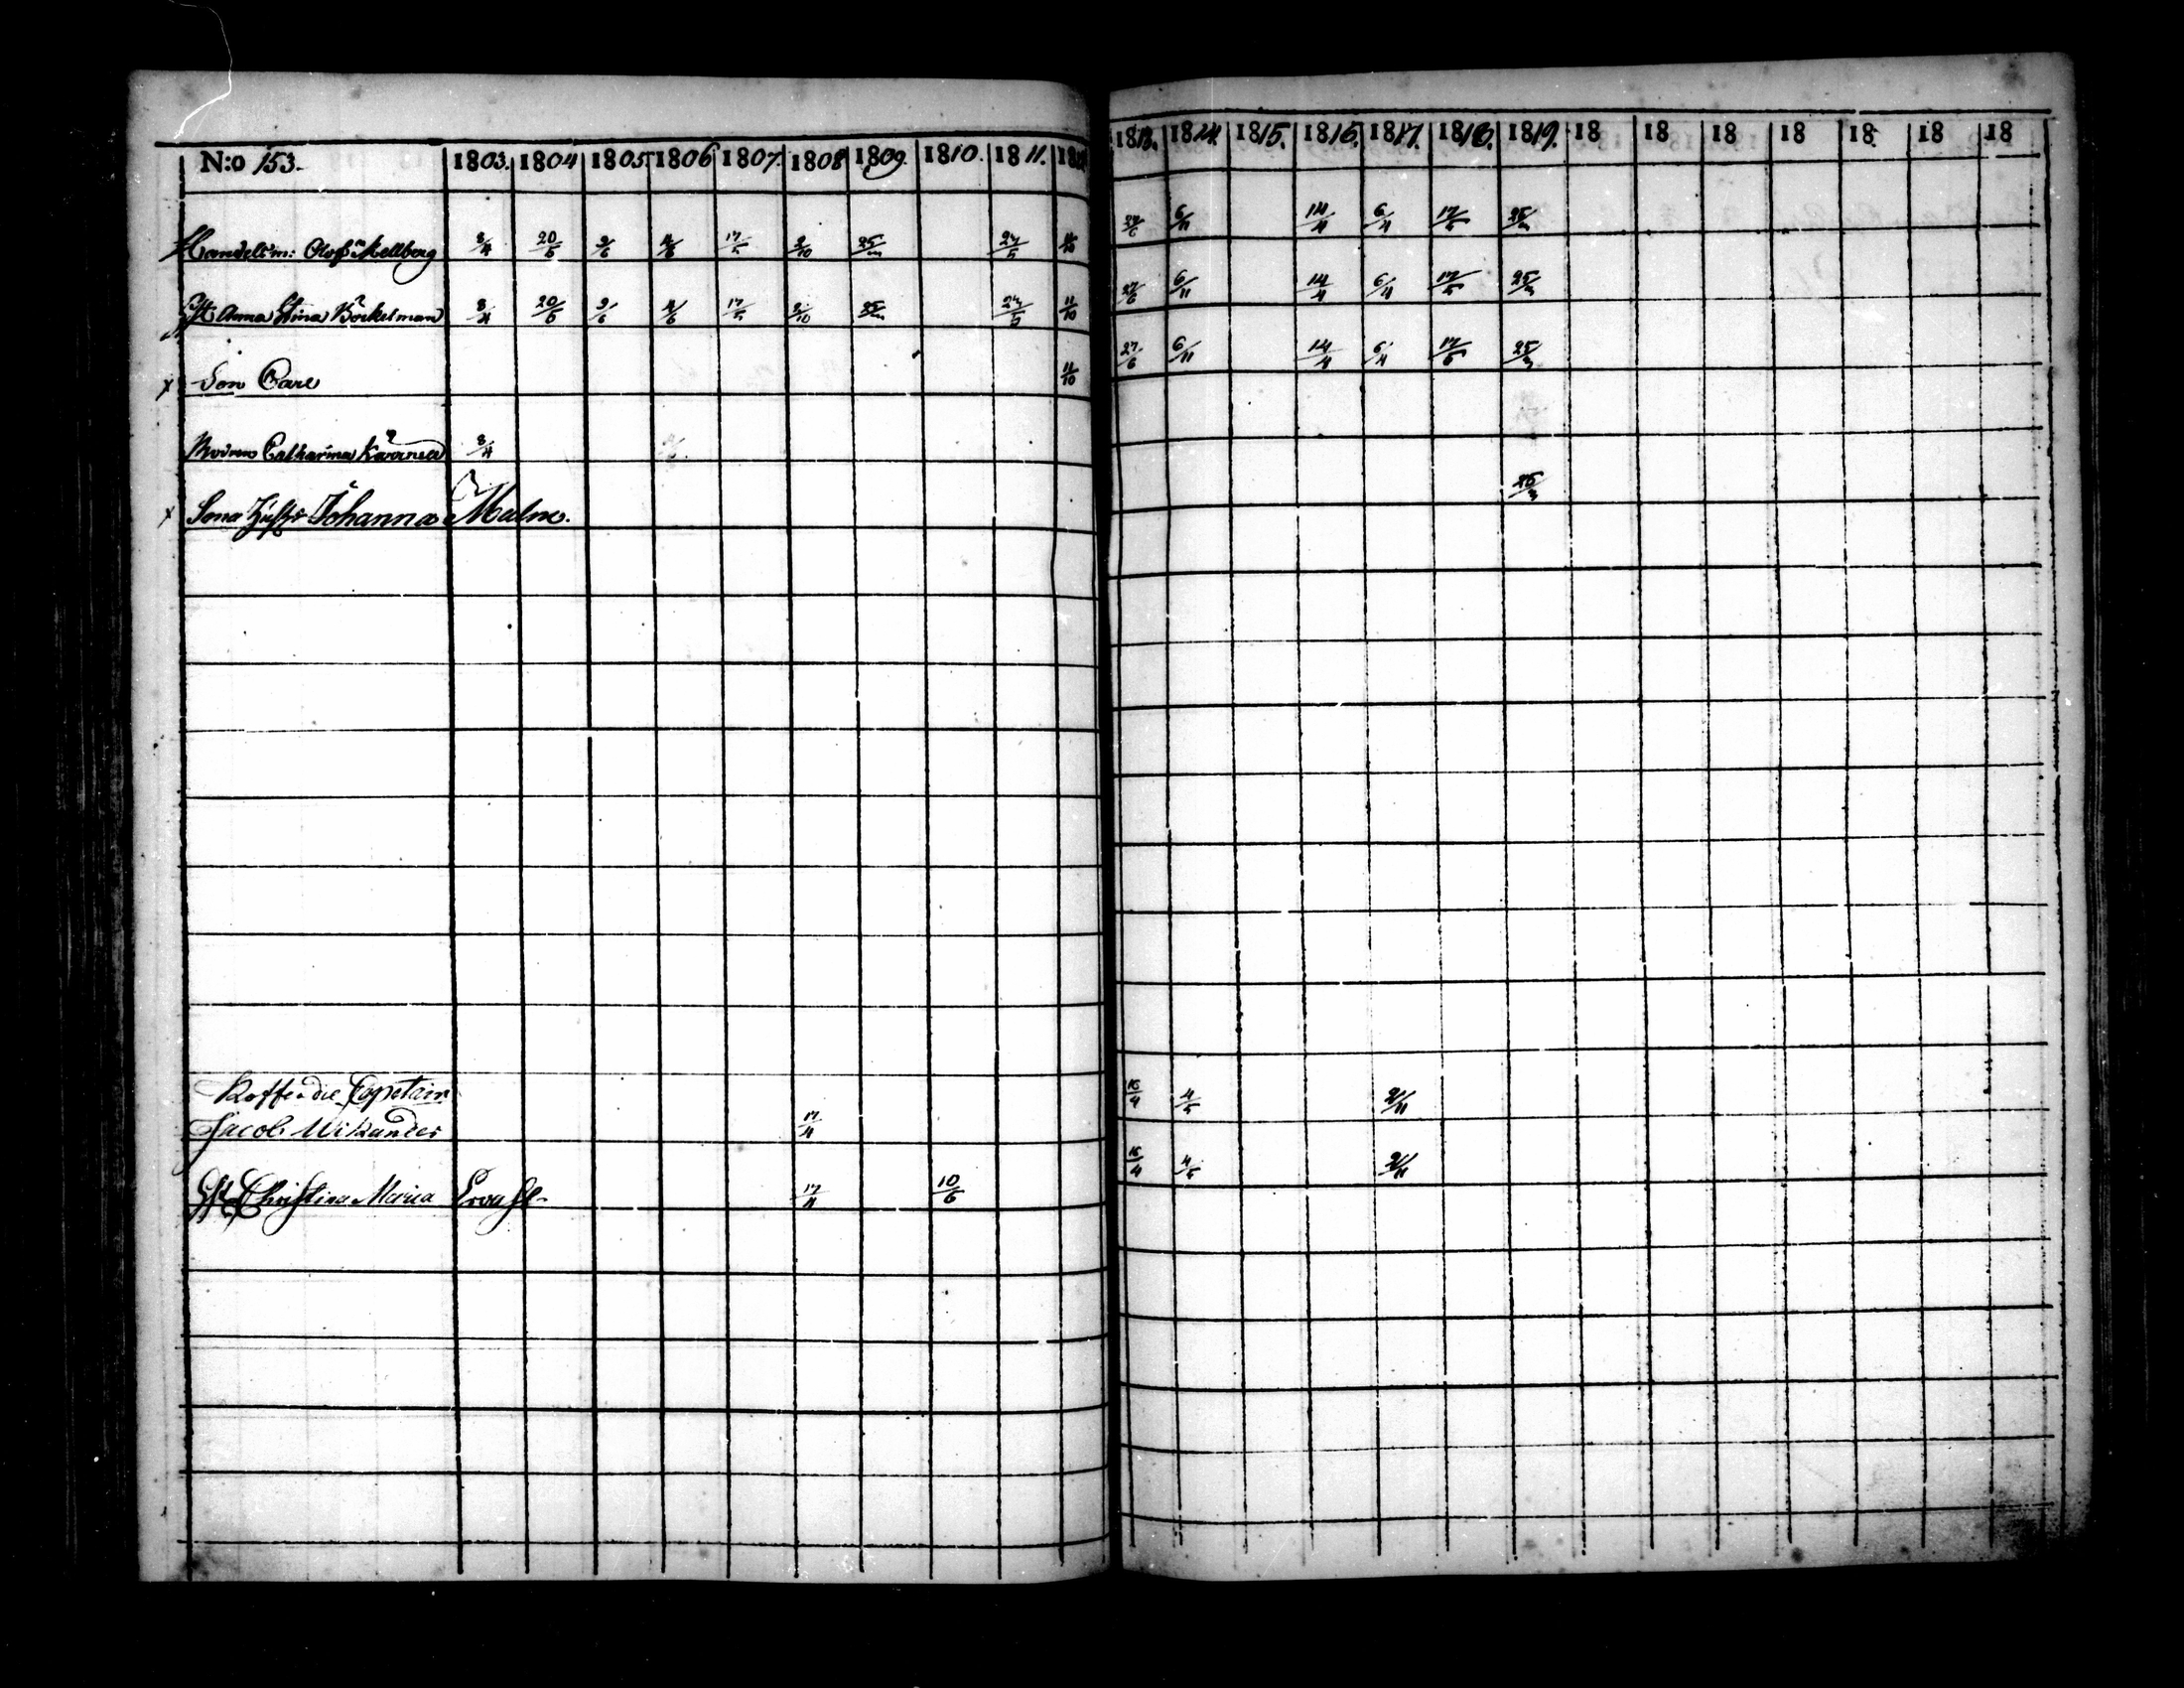 N:o 153. 1803. 1804 1805 1806 1807. 1808 1809. 1810. 1811. 1812 1813. 1814. 1815. 1816. 1817. 1818. 1819. 18 18 18 18 18. 18 18
Handelsm: Olof Mellberg 3/4 20/5 9/6 4/6 17/5 9/10 25/3 24/5 11/10 27/6 6/11 14/4 6/4 17/5 25/3
Hust. Anna Stina Böckelman 3/4 20/5 9/6 4/6 17/5 9/10 25/3 24/5 11/10 27/6 6/11 14/4 6/4 17/5 25/3
x Son Carl 11/10 27/6 6/11 14/4 6/4 17/5 25/3
Modren Catharina 3/4
x Sona Hustr Johanna Malm. 25/3
Koffardie Capetain
Jacob Wikander 17/4 4/5 2/11
Hust Christina Maria 17/4 10/6 4/5 2/11